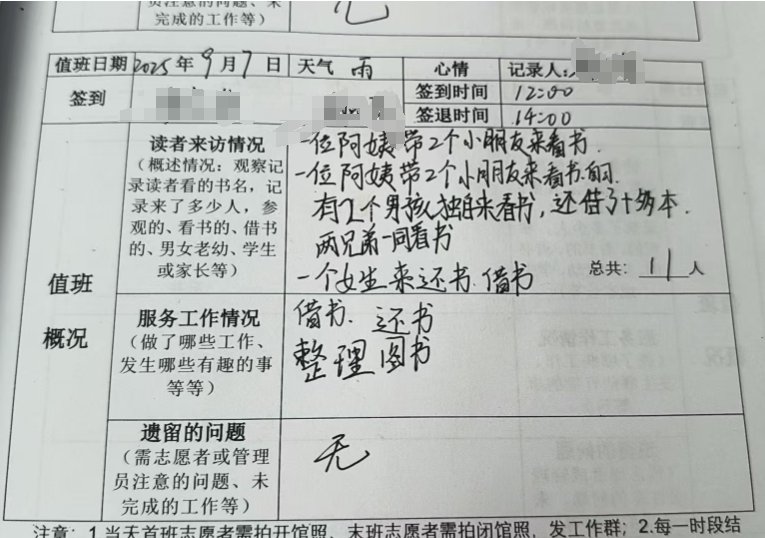 员注意的问题、未
完成的工作等） 无
值班日期 2025年9月7日 天气 雨 心情 记录人：
签到 签到时间 12:00
签退时间 14:00
读者来访情况
（概述情况：观察记
录读者看的书名，记
录来了多少人，参
观的、看书的、借书
的、男女老幼、学生
或家长等）
一位阿姨带2个小朋友来看书.
一位阿姨带2个小朋友来看书的.
有1个男孩独自来看书，还借了十多本.
两兄弟一同看书
一个女生来还书.借书
总共：11人
值班
概况
服务工作情况
（做了哪些工作、
发生哪些有趣的事
等等）
借书. 还书
整理图书
遗留的问题
（需志愿者或管理
员注意的问题、未
完成的工作等）
无
注意：1.当天首班志愿者需拍开馆照、末班志愿者需拍闭馆照，发工作群；2.每一时段结